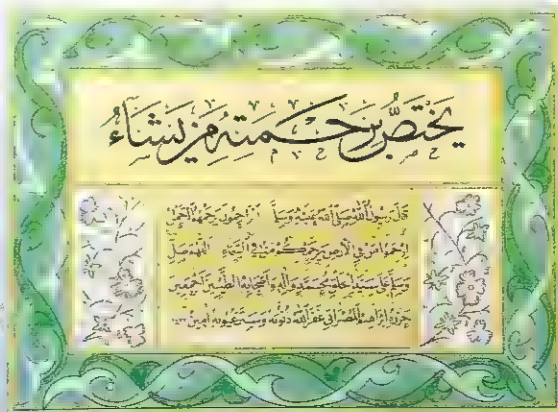 يَخْتَصُّ بِرَحْمَتِهِ مَن يَشَاءُ
قال رسول الله صلى الله عليه وسلم الراحمون يرحمهم الرحمن
ارحموا من في الأرض يرحمكم من في السماء اللهم صل
وسلم على سيدنا محمد وآله وأصحابه الطيبين أجمعين
حرره إبراهيم المصراتي غفر الله ذنوبه وستر عيوبه آمين